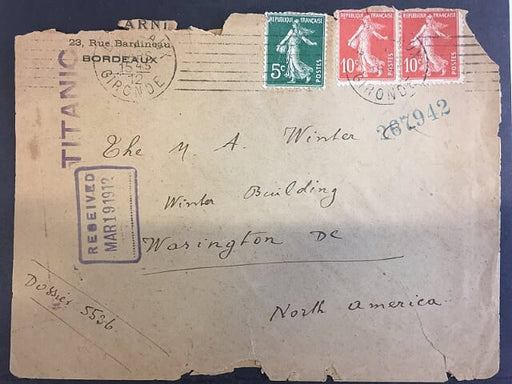 ARNE
23, Rue Bardineau
BORDEAUX
15 45
12
GIRONDE
REPUBLIQUE FRANÇAISE
5c
POSTES
REPUBLIQUE FRANÇAISE
10c
POSTES
REPUBLIQUE FRANÇAISE
10c
POSTES
GIRONDE
TITANIC
267942
The M. A. Winter
Winter Building
Warington DC
North America
RECEIVED
MAR 19 1912
Dossier 5536